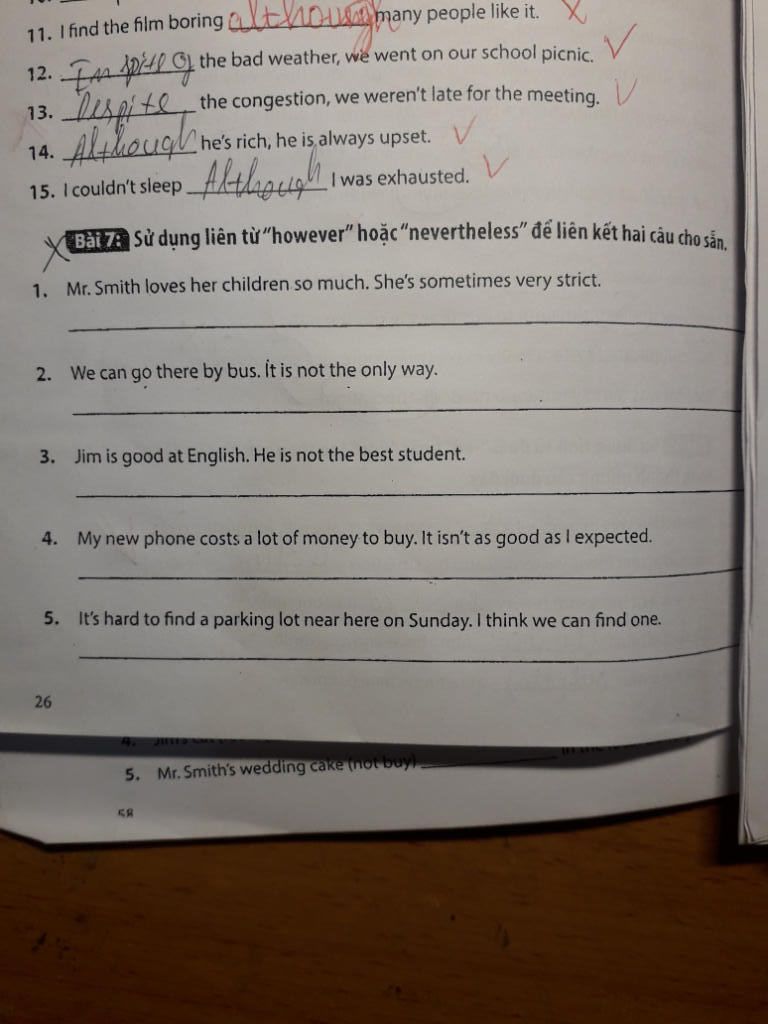 11. I find the film boring although many people like it.
12. In spite of the bad weather, we went on our school picnic.
13. Despite the congestion, we weren't late for the meeting.
14. Although he's rich, he is always upset.
15. I couldn't sleep Although I was exhausted.
Bài 7: Sử dụng liên từ "however" hoặc "nevertheless" để liên kết hai câu cho sẵn.
1. Mr. Smith loves her children so much. She's sometimes very strict.
2. We can go there by bus. It is not the only way.
3. Jim is good at English. He is not the best student.
4. My new phone costs a lot of money to buy. It isn't as good as I expected.
5. It's hard to find a parking lot near here on Sunday. I think we can find one.
26
4.
5. Mr. Smith's wedding cake (not buy)
58